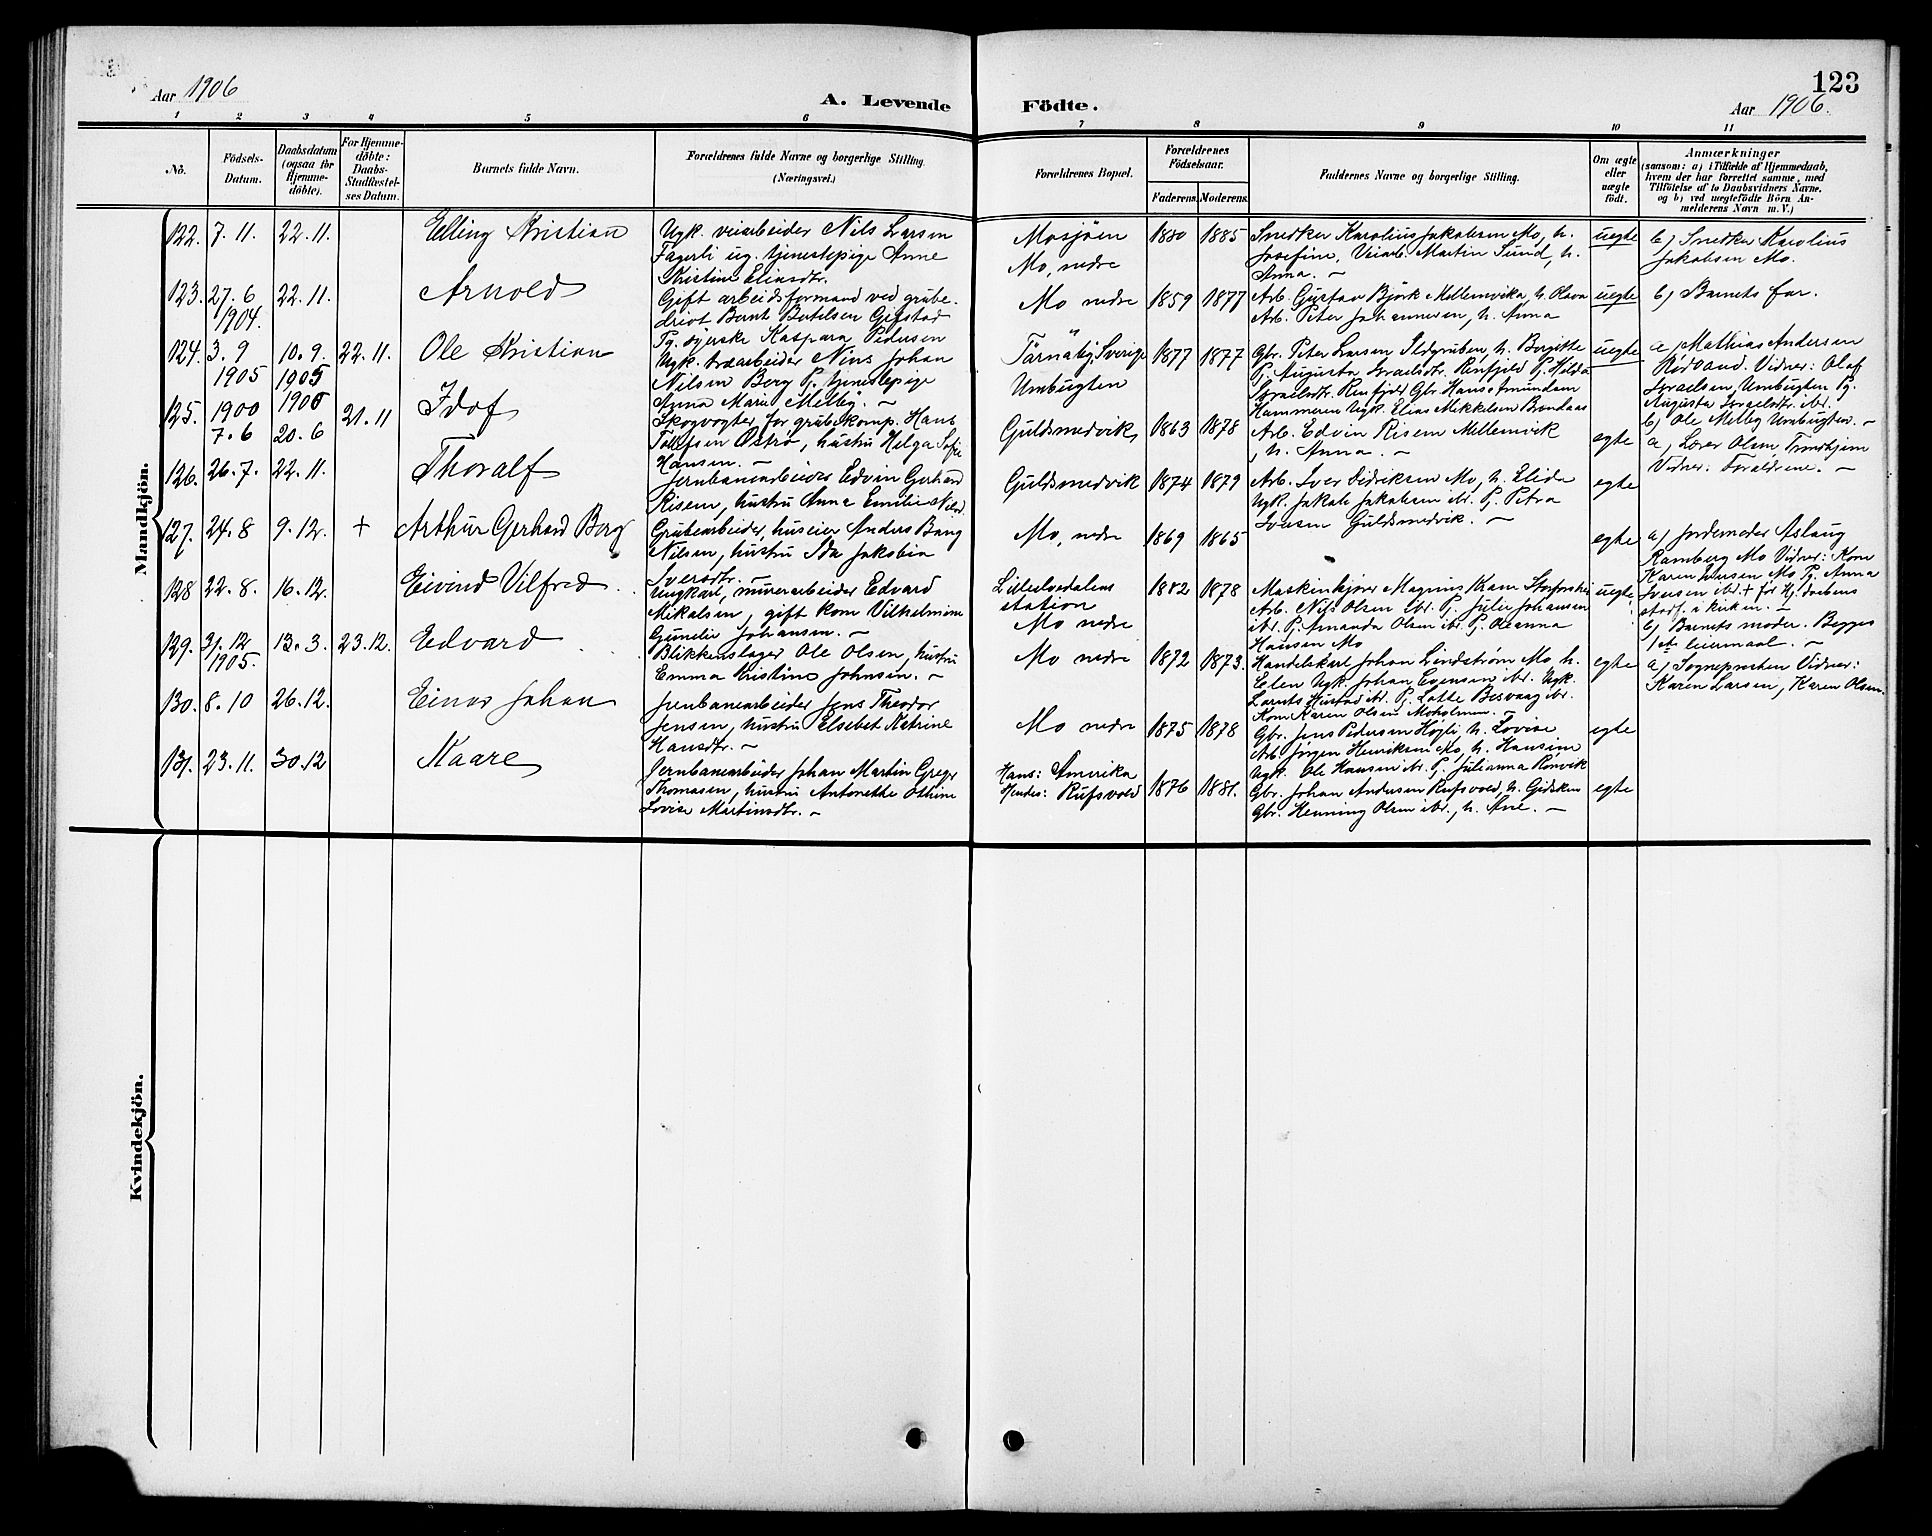 Aar 1906
A. Levende Födte.
123
Aar 1906.
1 2 3 4 5 6 7 8 9 10 11
No.
Födsels-Datum.
Daabsdatum (ogsaa for Hjemmedöbte).
For Hjemmedöbte: Daabs-Stadfæstelses Datum.
Barnets fulde Navn.
Forældrenes fulde Navne og borgerlige Stilling. (Næringsvei.)
Forældrenes Bopæl.
Forældrenes Födselsaar.
Faderens. Moderens.
Faddernes Navne og borgerlige Stilling.
Om ægte eller uægte födt.
Anmærkninger
(saasom: a) i Tilfælde af Hjemmedaab, hvem der har forrettet samme, med Tilföielse af to Daabsvidners Navne, og b) ved uægtefödte Börn Anmelderens Navn m. V.)
Mandkjön.
122. 7. 11. 22. 11. Elling Kristian
Ugk. veiarbeider Nils Larsen
Fagerli ug. tjenestepige Anne
Kristine Eliasdtr.
Mosjöen
Mo, nedre
1880 1885
Snedker Karolius Jakobsen Mo, h.
Josefine, Veiarb. Martin Sund, h.
Anna. —
uegte
b) Snedker Karolius
Jakobsen Mo.
123. 27. 6 1904. 22. 11. Arnold
Gift arbeidsformand ved grube-
drivt Bernt Bertelsen Gifstad
Pg. syerske Kaspara Pedersen
Mo nedre
1859 1877
Arb. Gustav Björk Mellemvika, h. Olava
Arb. Peter Johannesen, h. Anna
uegte
b) Barnets far.
124. 3. 9 1905 10. 9. 1905 22. 11. Ole Kristian
Ugk. træarbeider Nins Johan
Nilsen Berg Pg. tjenestepige
Anna Marie Melby. —
Tärnaby Sverige
Umbugten
1877 1877
Gbr. Peter Larsen Ildgruben, h. Borgitte
Pg. Augusta Israelsdtr. Renfjeld Pg. Hilda
Israelsdtr. Renfjeld Gbr. Hans Amundsen
Hammeren Ugk. Elias Mikkelsen Bredaas
uegte
a) Mathias Andersen
Rödvand. Vidner: Olaf
Israelsen, Umbugten Pg.
Augusta Israelsdtr. ibr.
b) Ole Melby Umbugten. —
125. 1900 7. 6 1900 20. 6 21. 11 Idof
Skogvogter for grubekomp. Hans
Tollefsen Öströ, hustru Helga Sofie
Hansen. —
Guldsmedvik
1863 1878
Arb. Edvin Risem Mellemvik
, h. Anna. —
egte
a) Lærer Olsen, Trondhjem
Vidner: Forældrene. —
126. 26. 7. 22. 11. Thoralf
Jernbanearbeider Edvin Gerhard
Risem, hustru Anna Emilie Nilsd.
Guldsmedvik
1874 1879
Arb. Iver Sidriksen Mo, h. Elida
Ugk. Jakob Jakobsen ibr. Pg. Petra
Iversen Guldsmedvik. —
egte
127. 24. 8 9. 12. + Arthur Gerhard Berg
Grubearbeider, huseier Anders Bang
Nilsen, hustru Ida Jakobia
Iversdtr. —
Mo, nedre
1869 1865
egte
a) Jordemoder Aslaug
Ramberg Mo Vidner: Kone
Karen Iversen Mo Pg. Anna
Iversen ibr. + för Hj. daabens
stadf. i kirken. —
128 22. 8. 16. 12. Eivind Vilfred
Ungkarl, murerarbeider Edvard
Mikalsen, gift kone Vilhelmine
Gunelie Johansen. —
station
Mo nedre
1882 1878
Maskinkjører Magnus Krane Storforshei
Arb. Nils Olsen ibr. Pg. Julie Johansen
ibr. Pg. Amanda Olsen ibr. Pg. Oleanna
Hansen Mo
uegte
b) Barnets moder. Begges
1ste leiermaal. —
129. 31. 12 1905. 13. 3. 23. 12. Edvard
Blikkenslager Ole Olsen, hustru
Emma Kristine Johnsen. —
Mo nedre
1872 1873.
Handelskarl Johan Lindström Mo, h.
Elen Ugk. Johan Evensen ibr. Ugk.
Laruts Hustad ibr. Pg. Lotte Besvaag ibr.
Kone Karen Olsen Moholmen. —
egte
a) Sognepresten Vidner:
Karen Larsen, Karen Olsen.
130. 8. 10 26. 12. Einar Johan
Jernbanearbeider Jens Theodor
Jensen, hustru Elsebet Katrine
Hansdtr. —
Mo nedre
1875 1878
Gbr. Jens Pedersen Högli, h. Lovise
Arb. Jørgen Henriksen Mo, h. Hansine
Ugk. Ole Hansen ibr. Pg. Julianna Renvik
egte
131. 23. 11. 30. 12 Kaare
Jernbanearbeider Johan Martin Greger
Thomasen, hustru Antonette Othine
Lovise Martinsdtr. —
Hans: Amerika
Hendes: Rufsvold
1876 1881.
Gbr. Johan Andersen Rufsvold, h. Gidsken
Gbr. Henning Olsen ibr., h. Ane. —
egte
Kvindekjön.